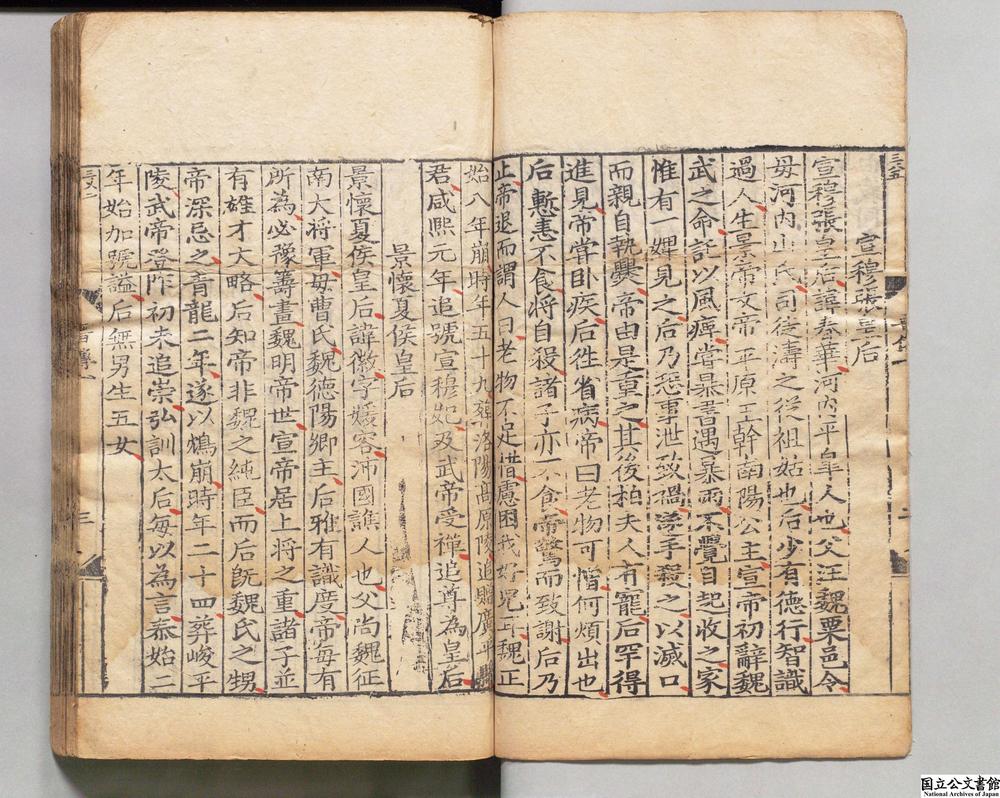 宣穆張皇后
宣穆張皇后諱春華河內平皐人也父汪魏粟邑令
母河內山氏司徒濤之從祖姑也后少有德行智識
過人生景帝文帝平原王幹南陽公主宣帝初辭魏
武之命託以風痺嘗暴書遇暴雨不覺自起收之家
惟有一婢見之后乃恐事泄致禍遂手殺之以滅口
而親自執爨帝由是重之其後柏夫人有寵后罕得
進見帝嘗卧疾后徃省病帝曰老物可憎何煩出也
后慙恚不食將自殺諸子亦不食帝驚而致謝后乃
止帝退而謂人曰老物不足惜慮困我好兒耳魏正
始八年崩時年五十九葬洛陽高原陵追贈廣平縣
君咸熙元年追號宣穆妃及武帝受禪追尊為皇后
景懷夏侯皇后
景懷夏侯皇后諱徽字媛容沛國譙人也父尚魏征
南大將軍母曹氏魏德陽鄉主后雅有識度帝每有
所為必豫籌畫魏明帝世宣帝居上將之重諸子並
有雄才大略后知帝非魏之純臣而后既魏氏之甥
帝深忌之青龍二年遂以鴆崩時年二十四葬峻平
陵武帝登阼初未追崇弘訓太后每以為言泰始二
年始加號謚后無男生五女
三
国立公文書館
National Archives of Japan